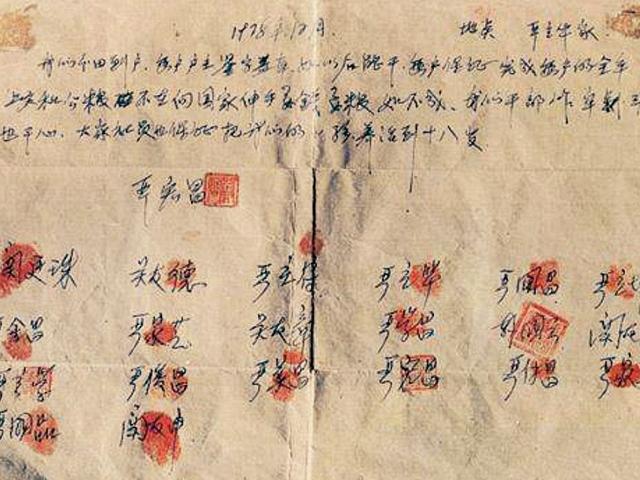 1978年12月. 地点 严立华家
我们分田到户，每户户主签字盖章，如以后能干，每户保证完成每户的全年
上交和公粮 不在向国家伸手要钱要粮 如不成，我们干部作牢刹
也干心，大家社员也保证把我们的小孩养活到十八岁
严宏昌
关廷珠 关友德 严立符 严立华 严国昌 严立
严金昌 严家芝 关友章 严学昌 韩国云 关友
严立学 严俊昌 严美昌 严宏昌 严付昌 严家
严国品 关友申